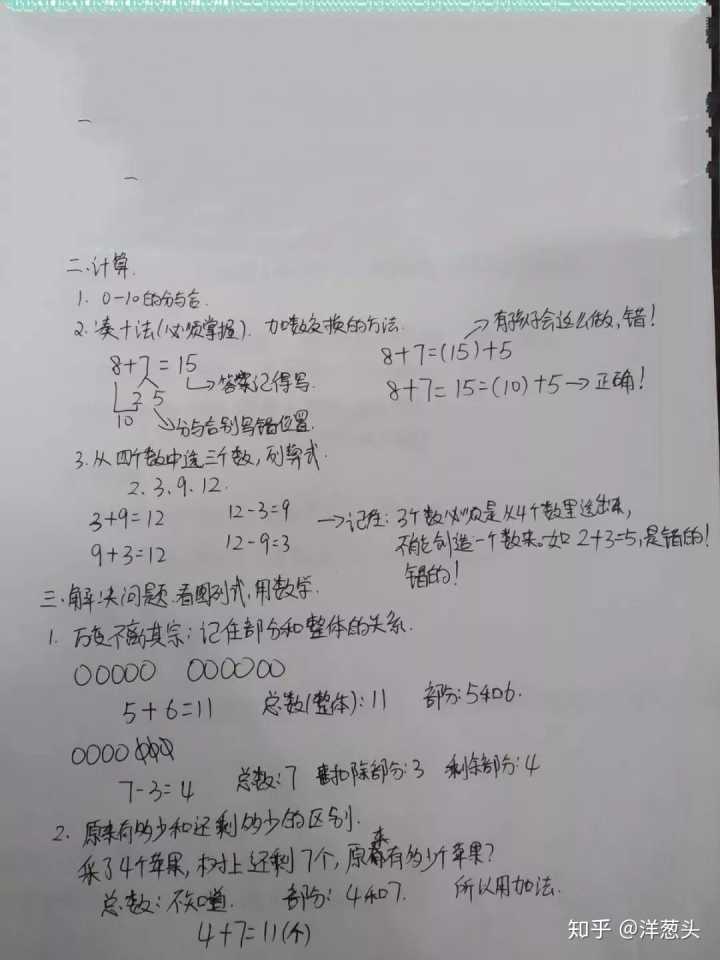 二、计算.
1. 0-10的分与合.
2. 凑十法(必须掌握). 加数交换的方法.
→有孩子会这么做,错!
8+7=15
8+7=(15)+5
→答案记得写.
8+7=15=(10)+5→正确!
2 5
10
→分与合别写错位置.
3. 从四个数中选三个数,列算式.
2. 3. 9. 12.
3+9=12 12-3=9
→记住: 3个数必须是从4个数里选出来,
9+3=12 12-9=3
不能创造一个数来。如2+3=5,是错的!
错的!
三、解决问题.看图列式,用数学.
1. 万变不离其宗:记住部分和整体的关系.
5+6=11 总数(整体):11 部分:5和6.
7-3=4 总数:7 扣除部分:3 剩余部分:4
2. 原来有多少和还剩多少的区别.
采了4个苹果,树上还剩7个,原来有多少个苹果?
总数:不知道. 部分:4和7. 所以用加法.
4+7=11(个)
知乎 @洋葱头